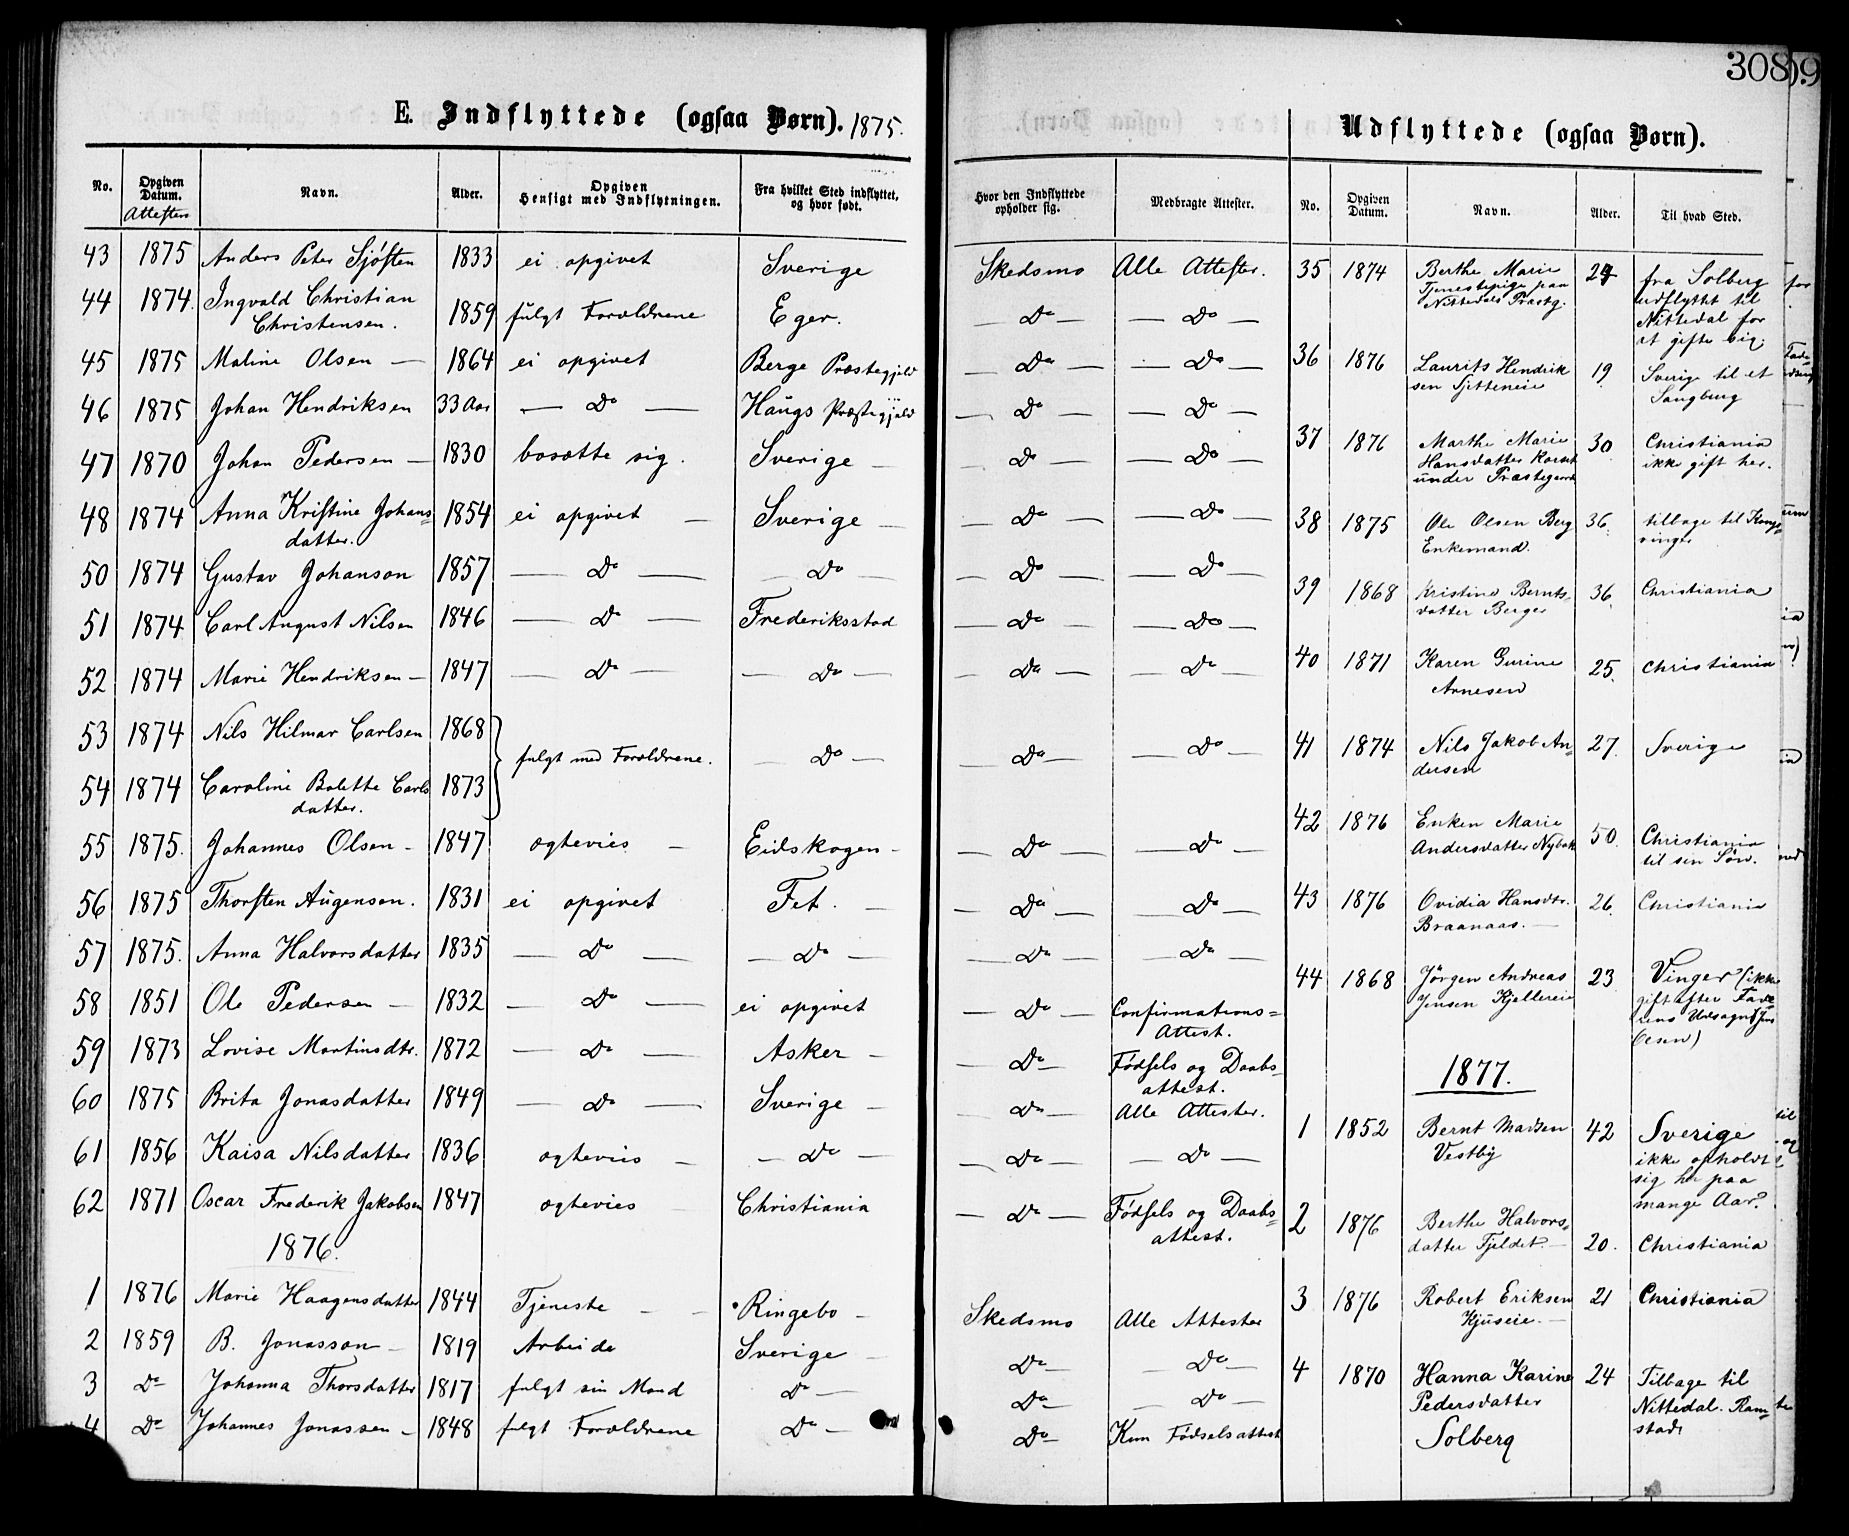 308
09
E. Indflyttede (ogsaa Børn). 1875.
No. | Opgiven Datum. Attesters | Navn. | Alder. | Opgiven Hensigt med Indflytningen. | Fra hvilket Sted indflyttet, og hvor født. | Hvor den Indflyttede opholder sig. | Medbragte Attester.
43 1875 Anders Peter Sjøsten 1833 ei opgivet Sverige Skedsmo Alle Attester.
44 1874. Ingvald Christian
Christensen. 1859 fulgt Forældrene Eger. — Do — — Do —
45 1875 Maline Olsen — 1864 ei opgivet Berge Præstegjeld — Do — — Do —
46 1875 Johan Hendriksen 33 Aar — Do — Haugs Præstegjeld — Do — — Do —
47 1870 Johan Pedersen — 1830 bosætte sig. Sverige — — Do — — Do —
48 1874 Anna Kristine Johans=
datter. 1854 ei opgivet — Sverige — — Do — — Do —
50 1874 Gustav Johanson 1857 — Do — — Do — — Do — — Do —
51 1874 Carl August Nilsen 1846 — Do — Frederiksstad — Do — — Do —
52 1874 Marie Hendriksen — 1847 — Do — — Do — — Do — — Do —
53 1874 Nils Hilmar Carlsen 1868
fulgt med Forældrene. — Do — — Do — — Do —
54 1874 Caroline Bolette Carls
datter. 1873
55 1875. Johannes Olsen - 1847 ogtevies — Eidskogen - — Do — — Do —
56 1875 Thorsten Augenson. 1831 ei opgivet Fet. — — Do — — Do —
57 1875. Anna Halvorsdatter 1835 — Do — — Do — — Do — — Do —
58 1851 Ole Pedersen — 1832 — Do — ei opgivet — Do — Confirmations=
Attest.
59 1873 Lovise Martinsdtr. 1872 — Do — Asker — — Do — Fødsels og Daabs=
attest.
60 1875 Brita Jonasdatter 1849 — Do — Sverige — — Do — Alle Attester.
61 1856 Kaisa Nilsdatter 1836 ogtevies — — Do — — Do — — Do —
62 1871 Oscar Frederik Jakobsen 1847 ogtevies Christiania — Do — Fødsels og Daabs=
attest.
1876.
1 1876 Marie Haagensdatter 1844 Tjeneste — Ringebo — Skedsmo Alle Attester
2 1859 B. Jonasson — 1819 Arbeide Sverige — Do — — Do —
3 Do Johanna Thorsdatter 1817 fulgt sin Mand Do — Do — — Do —
4 Do Johannes Jonassen — 1848 fulgt Forældrene Do — Do — Kun Fødselsattest
Udflyttede (ogsaa Børn).
No. | Opgiven Datum. | Navn. | Alder. | Til hvad Sted.
35 1874 Berthe Marie 24 fra Solberg
Tjenestepige paa udflyttet til
Nittedals Præstg. Nittedal for
at gifte sig.
36 1876 Laurits Hendrik
sen Sitteneie 19 Sverige til et
Sangbrug
37 1876 Marthe Marie 30 Christiania
Hansdatter ikke gift her.
under Præstegaard
38 1875 Ole Olsen Berg 36. tilbage til Kongs=
Enkemand. vinger
39 1868 Kristine Bernts= 36 Christiania
datter Berger
40 1871 Karen Gurine 25. Christiania
Arnesen
41 1874 Nils Jakob An= 27. Sverige
dersen
42 1876 Enken Marie
Andersdatter Nybak 50. Christiania
til sin Søn.
43 1876 Ovidia Hansdtr. 26. Christiania
Braanaas. —
44 1868 Jørgen Andreas 23 Vinger (ikke
Jensen Kjellereie gift efter Fade=
rens Udsagn (Jens
Olsen)
1877.
1 1852 Bernt Madsen 42 Sverige
Vestby ikke opholdt
sig her paa
mange Aar?
2 1876 Berthe Halvors=
datter Fjeldet. — 20. Christiania
3 1876 Robert Eriksen 21 Christiania
Kjuseie. —
4 1870 Hanna Karine 24 Tilbage til
Pedersdatter Nittedal. Ram=
Solberg stad